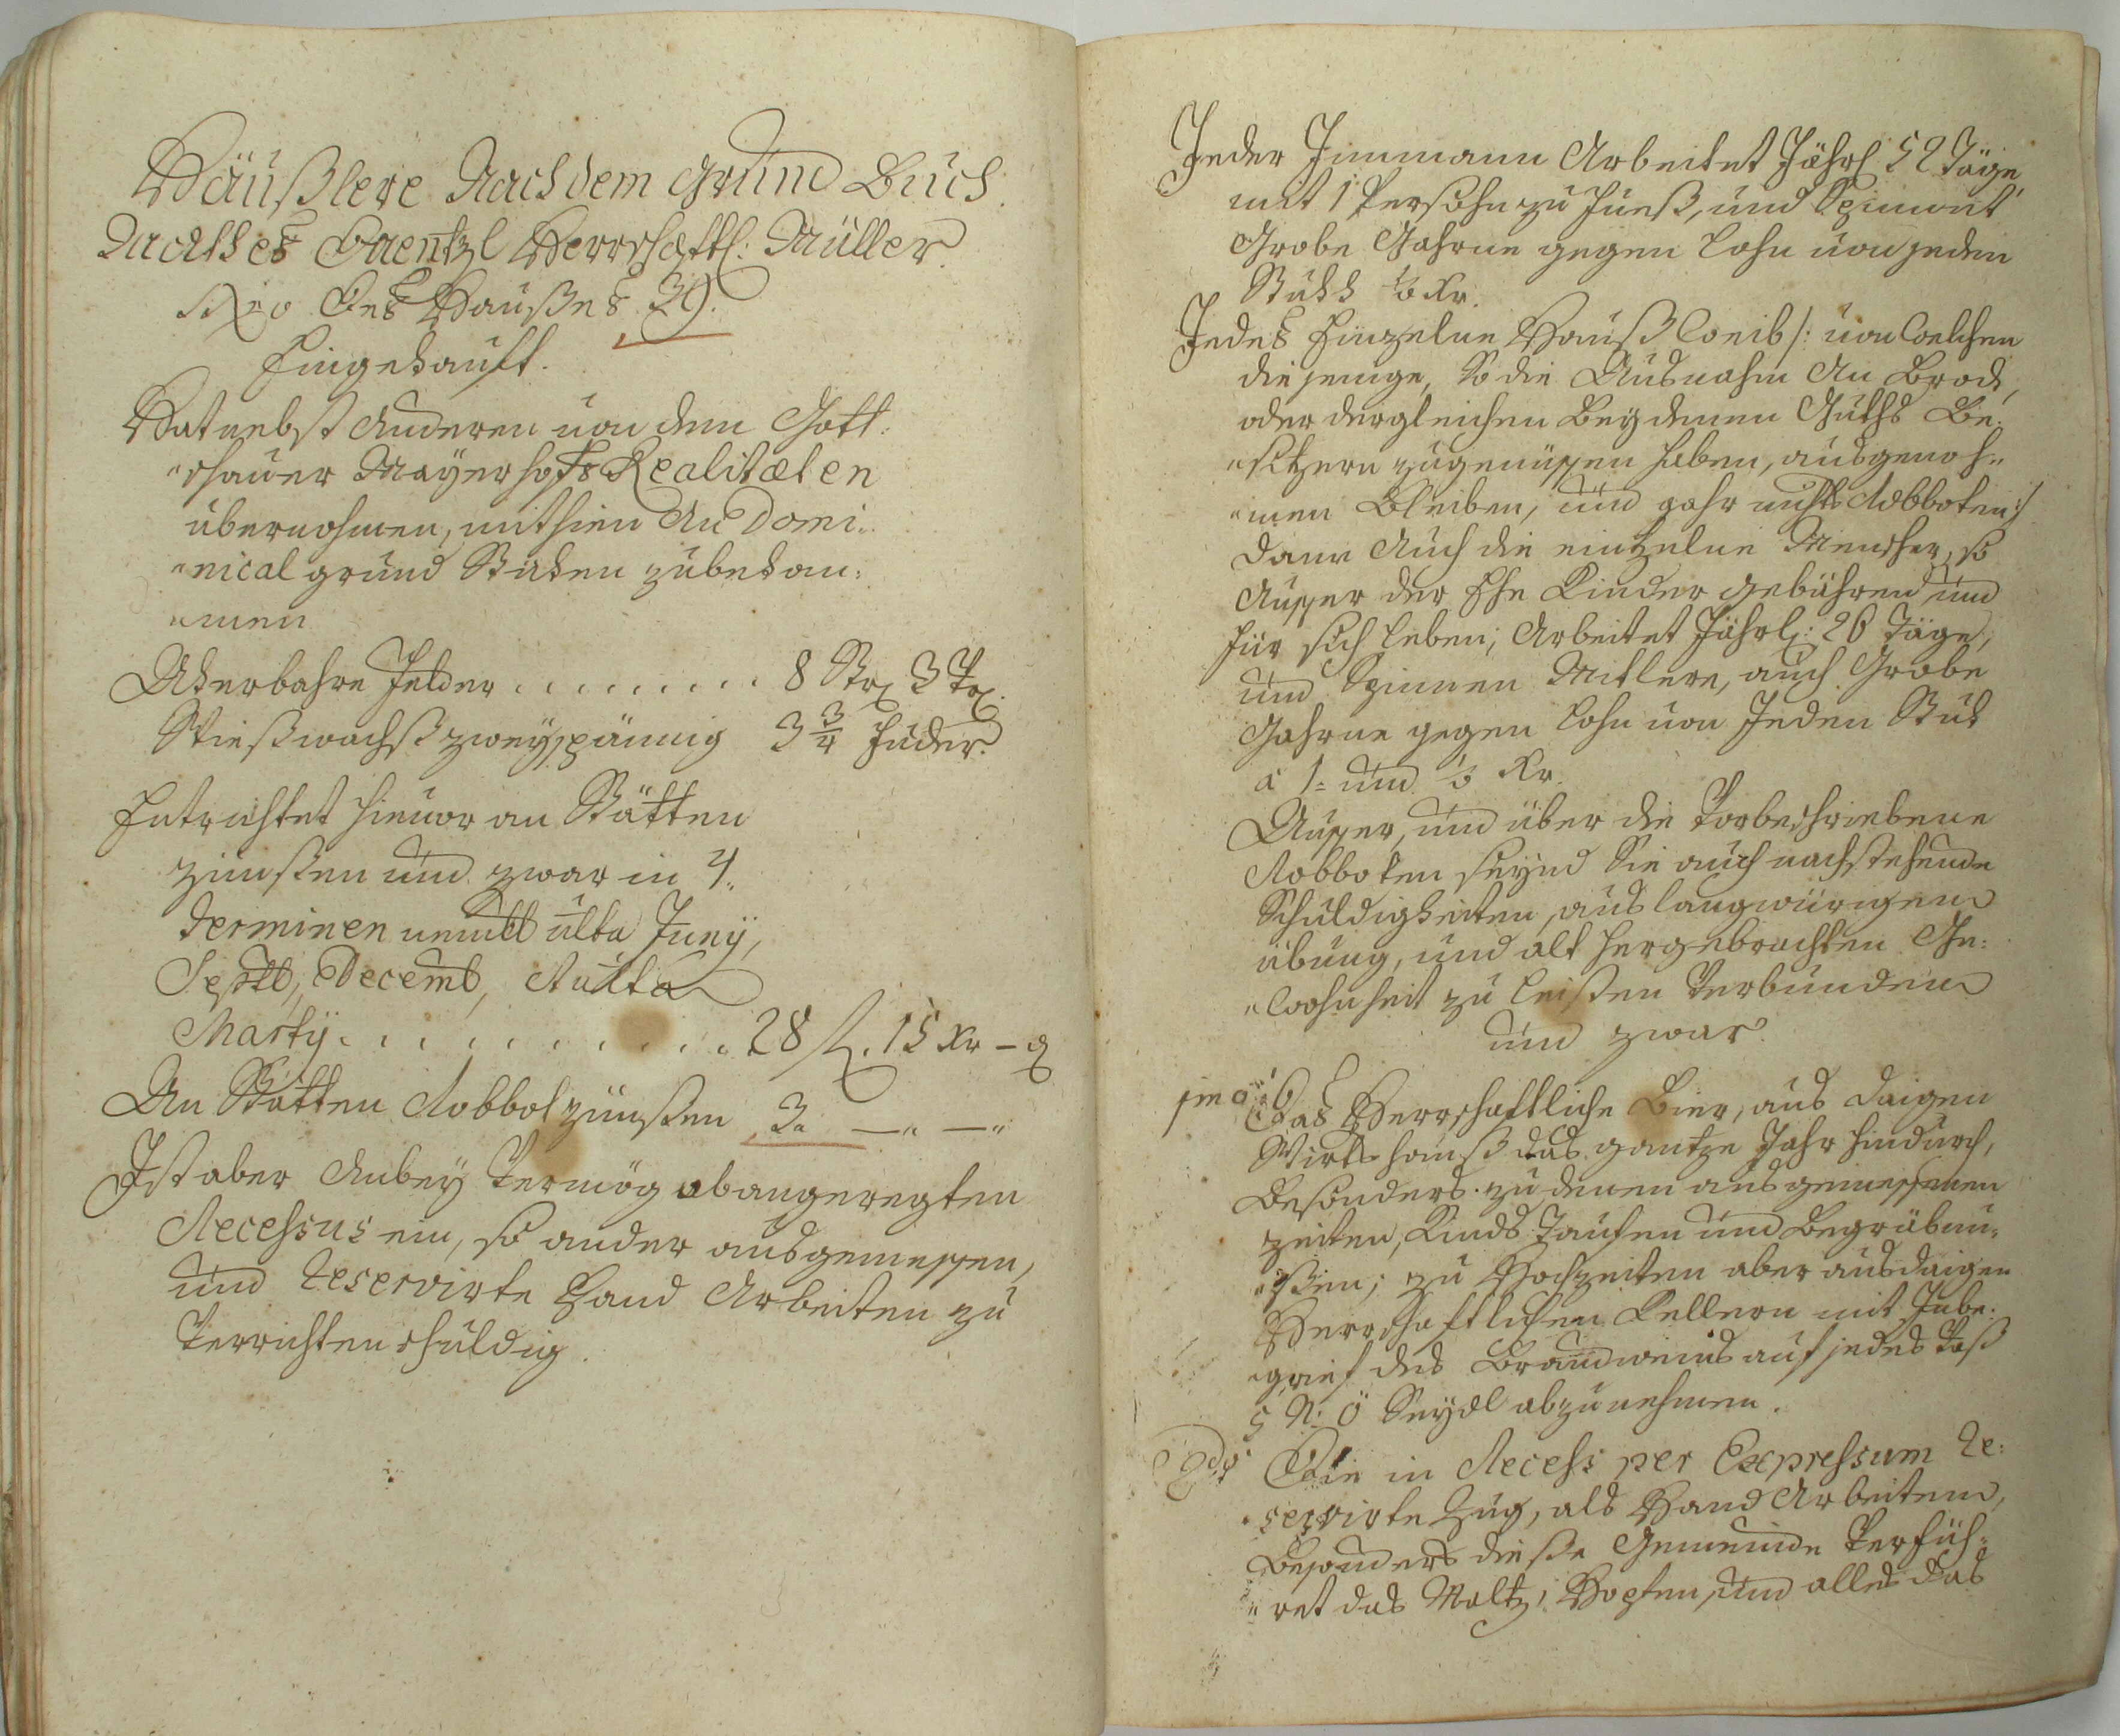 Häußlere Nach dem Grund Buch.
Mathes Frentzl Herrschaftl: Müller.
Nro Des Haußes 39.
Eingekauft.
Hat nebst Anderen von dem Gott-
"schauer Mayerhofs Realitæten
übernohmen, mithien An Domi-
"nical grund Stüken zubekom-
"men
Akerbahre Felder ......... 8 Str 3
Wießwachß zweyspännig 3 3/4 Fuder.
Entrichtet hievor an Stätten
zinnßen und zwar in 4.
Terminen nembl ulta Juny,
Septb, Decemb, Et ulta
Marty ......... 28 fl. 15 Kr – d
An Stätten Robbot zinnßen 3" —" —"
Ist aber Anbey Vermög obangeregten
Recessus ein, so ander ausgemessen,
und reservirte Hand Arbeiten zu
Verrichten schuldig.
Jeder Innmann Arbeitet Jährl 52 Täge
mit 1 Persohn zu Fueß, und Spinnet
Grobe Gahrne gegen Lohn von jeden
Stükh Kr.
Jedes Einzelne Haußweib /: von welchen
die jenige, so die Ausnahm An Brod,
oder dergleichen Bey denen Guths Be-
"sitzern zugenüssen haben, ausgenoh-
"men Bleiben, und gahr nichts Robboten :/
Dann Auch die eintzelne Menscher, so
Ausser der Ehe Kinder gebähren und
für sich leben; Arbeitet Jährl: 26 Täge,
und Spinnen Mitlere, auch Grobe
Gahrne gegen Lohn von Jeden Stük
à 1- und Kr.
Ausser, und über die Vorbeschriebene
Robboten seynd Sie auch nachstehende
Schuldigkeiten, aus langwürigen
übung, und alt hergebrachten Ge-
"wohnheit zu leisten Verbunden
und zwar.
imo Das Herrschaftliche Bier, aus daigen
Wirtshauß das gantze Jahr hindurch,
Besonders zu denen ausgemessenen
zeiten, Kinds Taufen und Begräbnu-
"ßen; zu Hochzeiten aber aus daigen
Herrschaftlichen Kellern mit Inbe-
"grief des Brandweins auf jedes Vaß
5 N: Ö Seydl abzunehmen.
2do Die in Recess per Expressum re-
"servirte Zug, als Hand Arbeiten,
Besonders diese Gemeinde Verfüh-
"ret das Maltz, Hopfen, und alles das